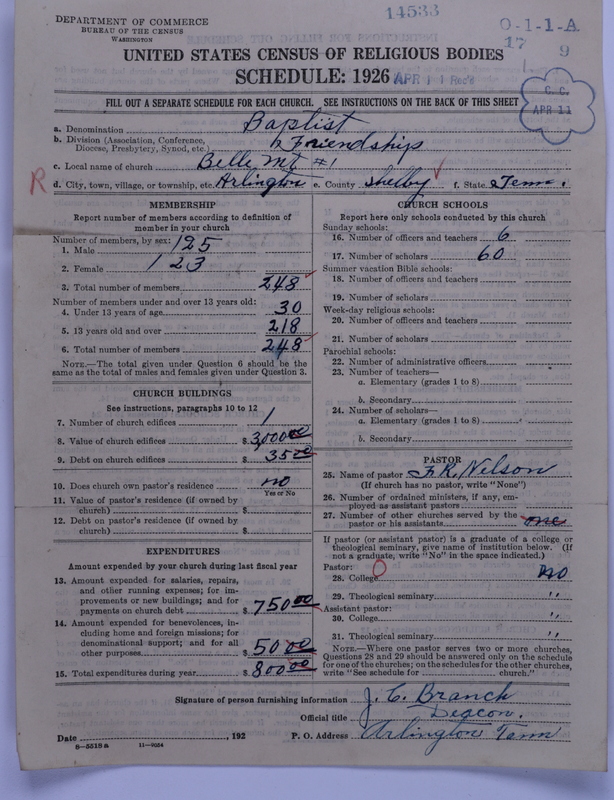 14533
O-1-1-A
17 9
DEPARTMENT OF COMMERCE
BUREAU OF THE CENSUS
WASHINGTON
UNITED STATES CENSUS OF RELIGIOUS BODIES
SCHEDULE: 1926
APR 11 Rec'd
C. C.
APR 11
FILL OUT A SEPARATE SCHEDULE FOR EACH CHURCH. SEE INSTRUCTIONS ON THE BACK OF THIS SHEET
a. Denomination Baptist
b. Division (Association, Conference, Diocese, Presbytery, Synod, etc.) Friendship
c. Local name of church Belle Mt #1
R d. City, town, village, or township, etc. Arlington e. County Shelby f. State Tenn.
MEMBERSHIP
Report number of members according to definition of
member in your church
Number of members, by sex:
1. Male 125
2. Female 123
3. Total number of members 248
Number of members under and over 13 years old:
4. Under 13 years of age 30
5. 13 years old and over 218
6. Total number of members 248
NOTE.—The total given under Question 6 should be
same as the total of males and females given under Question 3.
CHURCH BUILDINGS
See instructions, paragraphs 10 to 12
7. Number of church edifices 1
8. Value of church edifices $ 3,000 00
9. Debt on church edifices $ 35 00
10. Does church own pastor's residence? no
Yes or No
11. Value of pastor's residence (if owned by
church) $
12. Debt on pastor's residence (if owned by
church) $
EXPENDITURES
Amount expended by your church during last fiscal year
13. Amount expended for salaries, repairs,
and other running expenses; for im-
provements or new buildings; and for
payments on church debt $ 750 00
14. Amount expended for benevolences, in-
cluding home and foreign missions; for
denominational support; and for all
other purposes $ 50 00
15. Total expenditures during year $ 800 00
CHURCH SCHOOLS
Report here only schools conducted by this church
Sunday schools:
16. Number of officers and teachers 6
17. Number of scholars 60
Summer vacation Bible schools:
18. Number of officers and teachers
19. Number of scholars
Week-day religious schools:
20. Number of officers and teachers
21. Number of scholars
Parochial schools:
22. Number of administrative officers
23. Number of teachers—
a. Elementary (grades 1 to 8)
b. Secondary
24. Number of scholars—
a. Elementary (grades 1 to 8)
b. Secondary
PASTOR
25. Name of pastor F. R. Nelson
(If church has no pastor, write "None")
26. Number of ordained ministers, if any, em-
ployed as assistant pastors
27. Number of other churches served by the
pastor or his assistants one
If pastor (or assistant pastor) is a graduate of a college or
theological seminary, give name of institution below. (If
not a graduate, write "No" in the space indicated.)
Pastor: O
28. College No
29. Theological seminary "
Assistant pastor:
30. College "
31. Theological seminary "
NOTE.—Where one pastor serves two or more churches,
Questions 28 and 29 should be answered only on the schedule
for one of the churches; on the schedules for the other churches,
write "See schedule for church."
Signature of person furnishing information J. C. Branch
Official title Deacon.
Date , 192 P. O. Address Arlington Tenn
8—5518a 11—9054